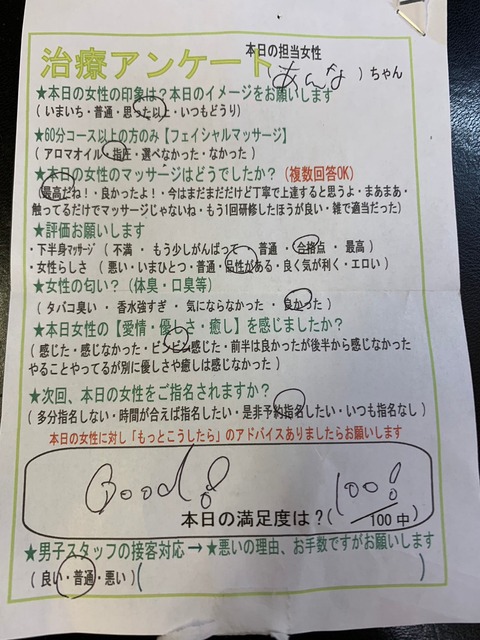 本日の担当女性
治療アンケート（あんな）ちゃん
★本日の女性の印象は？本日のイメージをお願いします
（いまいち・普通・思った以上・いつもどうり）
★60分コース以上の方のみ【フェイシャルマッサージ】
（アロマオイル・指圧・選べなかった・なかった）
★本日の女性のマッサージはどうでしたか？（複数回答OK）
（最高だね！・良かったよ！・今はまだまだだけど丁寧で上達すると思うよ・まあまあ・
触ってるだけでマッサージじゃないね・もう1回研修したほうが良い・雑で適当だった）
★評価お願いします
・下半身マッサージ（不満・もう少しがんばって・普通・合格点・最高）
・女性らしさ（悪い・いまひとつ・普通・品性がある・良く気が利く・エロい）
★女性の匂い？（体臭・口臭等）
（タバコ臭い・香水強すぎ・気にならなかった・良かった）
★本日女性の【愛情・優しさ・癒し】を感じましたか？
（感じた・感じなかった・ビンビン感じた・前半は良かったが後半から感じなかった
やることやってるが別に優しさや癒しは感じなかった）
★次回、本日の女性をご指名されますか？
（多分指名しない・時間が合えば指名したい・是非予約指名したい・いつも指名なし）
本日の女性に対し「もっとこうしたら」のアドバイスありましたらお願いします
Good!
100!
本日の満足度は？（／100中）
★男子スタッフの接客対応→★悪いの理由、お手数ですがお願いします
（良い・普通・悪い）（　）